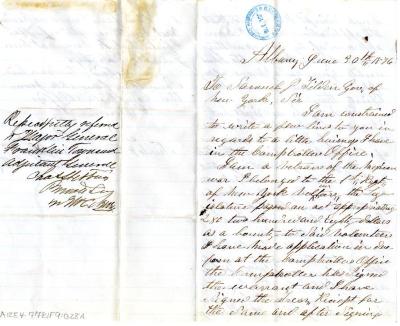 Albany June 30th 1876
To Samuel J Tilden Gov. of
New York, Sir
I am constrained
to write a few lines to you in
regards to a little business I have
in the Comptrollers Office
I am a Veteran of the Mexican
war I belonged to the 1st Regt
of New York Volters, the
islature passed an act appropriating
two hundred and eighty dollars
as a bounty to said volunteers
I have made application in due
form at the Comptrollers Office
the Comptroller has signed
the warrant and I have
signed the Receipt for
the Same and after signing
Respectfully referred
to Major General
Franklin Townsend
Adjutant General
A1254-778159-B28A